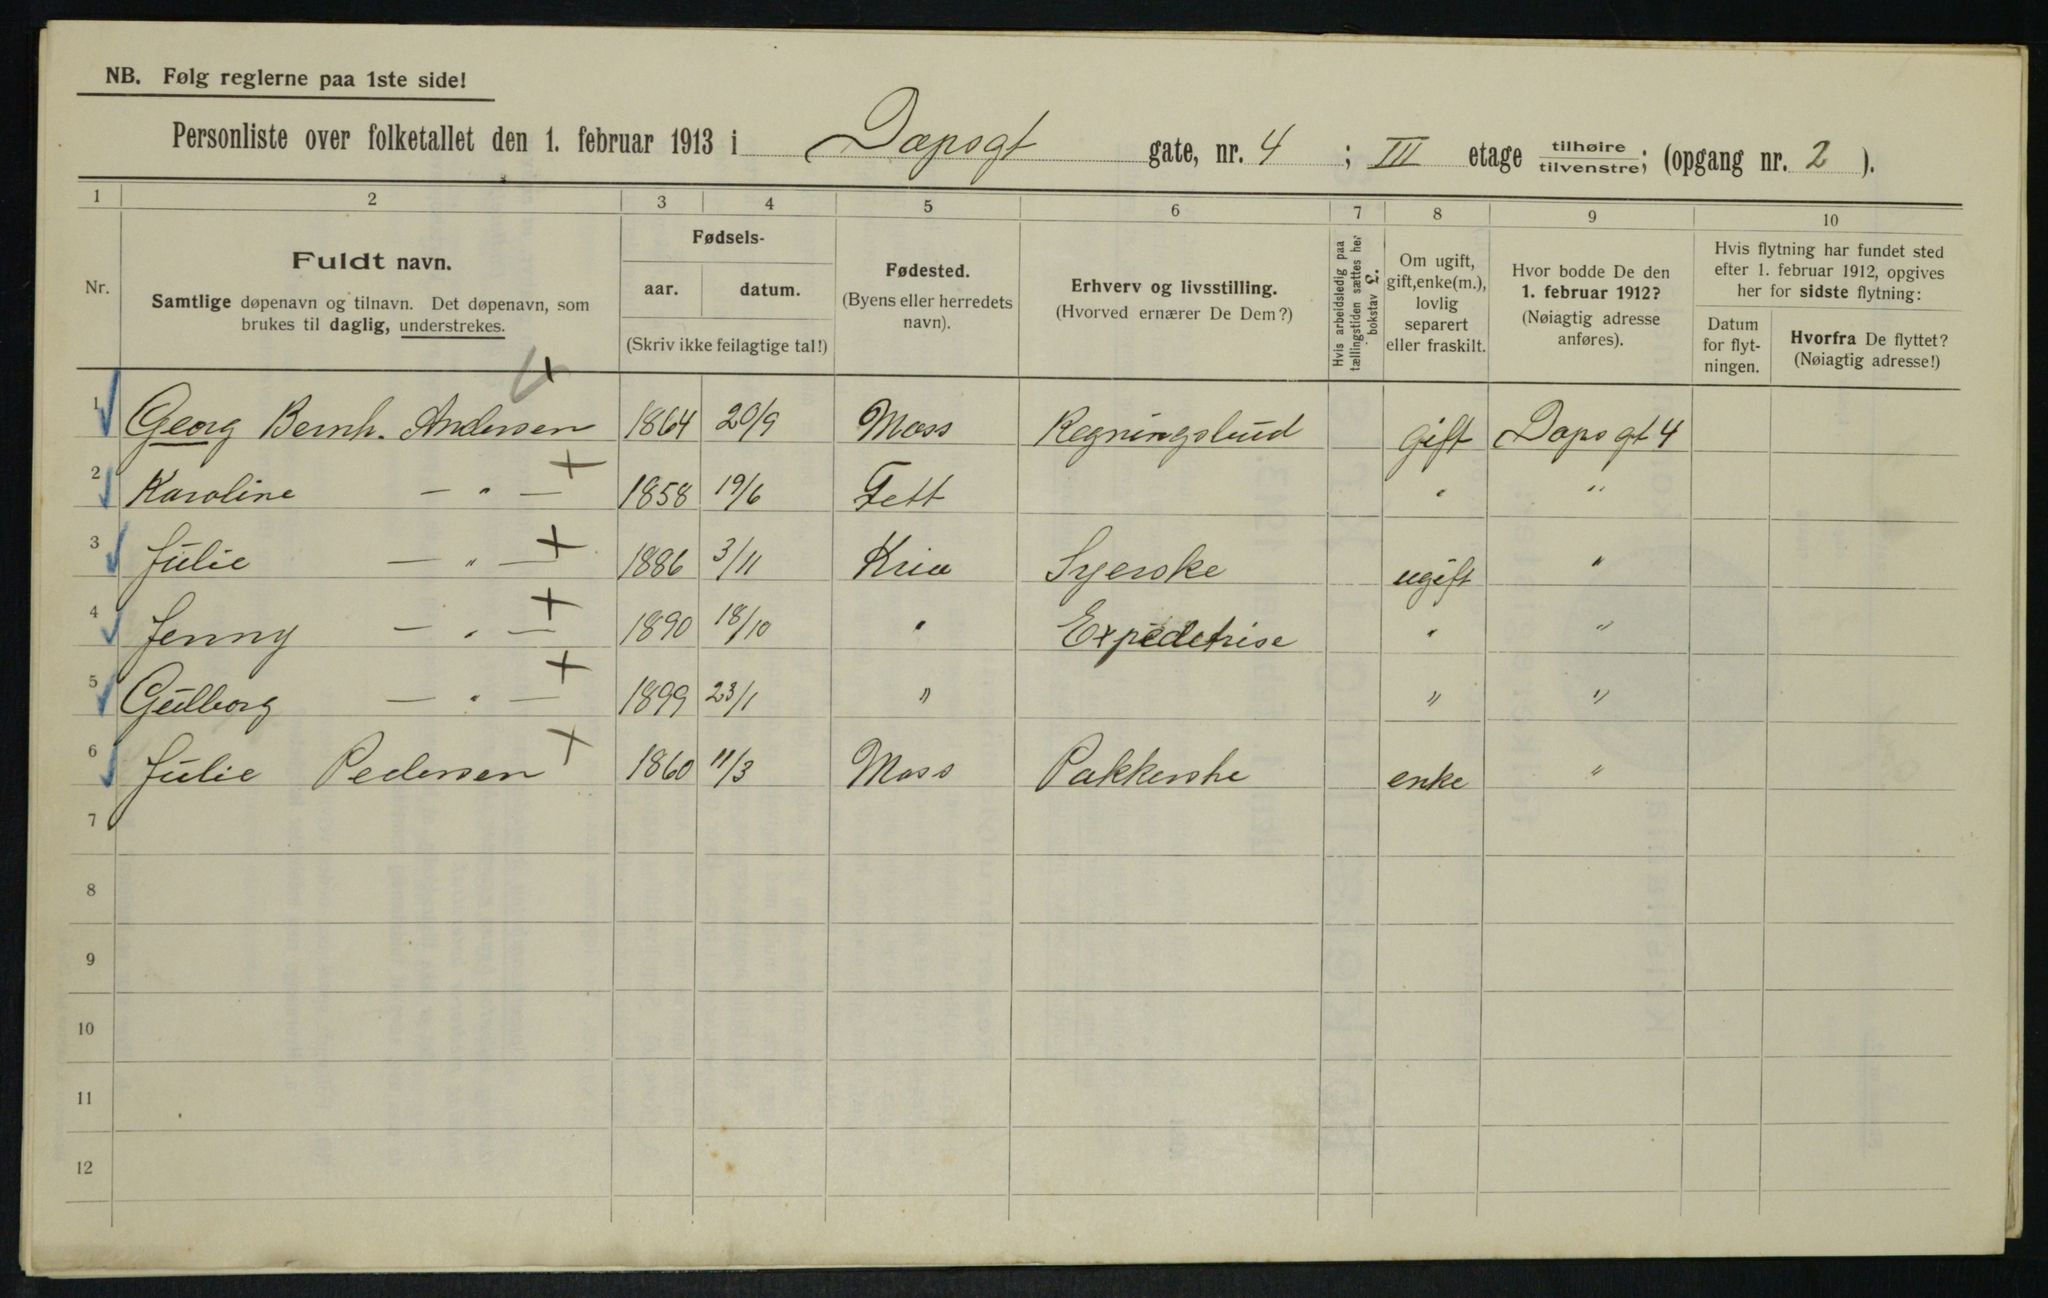 NB. Følg reglerne paa 1ste side!
Personliste over folketallet den 1. februar 1913 i Dapsgt gate, nr. 4 ; III etage tilhøire/tilvenstre; (opgang nr. 2 ).
1 2 3 4 5 6 7 8 9 10
Nr.
Fuldt navn.
Samtlige døpenavn og tilnavn. Det døpenavn, som
brukes til daglig, understrekes.
Fødsels-
aar. datum.
(Skriv ikke feilagtige tal!)
Fødested.
(Byens eller herredets
navn).
Erhverv og livsstilling.
(Hvorved ernærer De Dem?)
Hvis arbeidsledig paa
tællingstiden sættes her
bokstav L.
Om ugift,
gift,enke(m.),
lovlig
separert
eller fraskilt.
Hvor bodde De den
1. februar 1912?
(Nøiagtig adresse
anføres).
Hvis flytning har fundet sted
efter 1. februar 1912, opgives
her for sidste flytning:
Datum
for flyt-
ningen.
Hvorfra De flyttet?
(Nøiagtig adresse!)
1 Georg Bernh. Andersen 1864 20/9 Moss Regningsbud gift Daps gt 4
2 Karoline — " — 1858 19/6 Fett " "
3 Julie — " — 1886 3/11 Kria Syerske ugift "
4 Jenny — " — 1890 18/10 " Expedetrise " "
5 Gulborg — " — 1899 23/1 " " "
6 Julie Pedersen 1860 11/3 Moss Pakkerske enke "
7
8
9
10
11
12